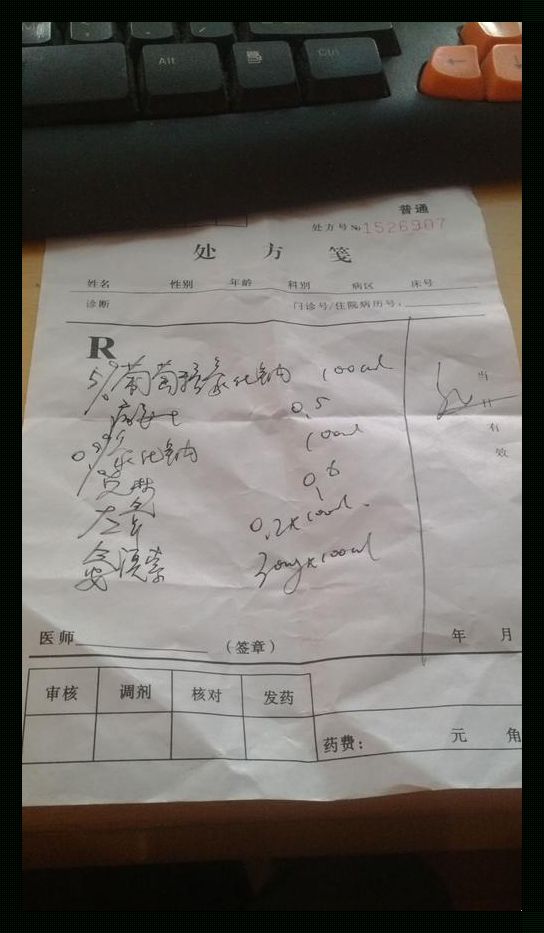 Alt
Ctrl
普通
处方号№1526907
处方笺
姓名 性别 年龄 科别 病区 床号
诊断 门诊号/住院病历号：
R
5% 葡萄糖氯化钠 100ml
0.5
0.9% 氯化钠 100ml
克林 0.6
左氧 0.2×100ml
氨溴索 30mg×100ml
当
日
有
效
医师 （签章） 年 月
审核 调剂 核对 发药
药费： 元 角